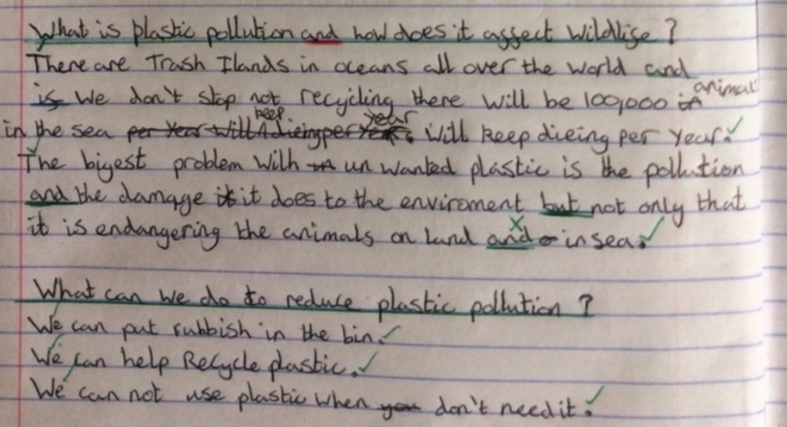 What is plastic pollution and how does it affect wildlife?
There are Trash Ilands in oceans all over the world and
is We don't stop not recycling there will be 100,000 in animal
in the sea per year will keep dieing per year. will keep dieing per year.
The bigest problem with un wanted plastic is the pollution
and the damage it it does to the enviroment but not only that
it is endangering the animals on land and in sea.
What can we do to reduce plastic pollution?
We can put rubbish in the bin.
We can help Recycle plastic.
We can not use plastic when you don't need it.